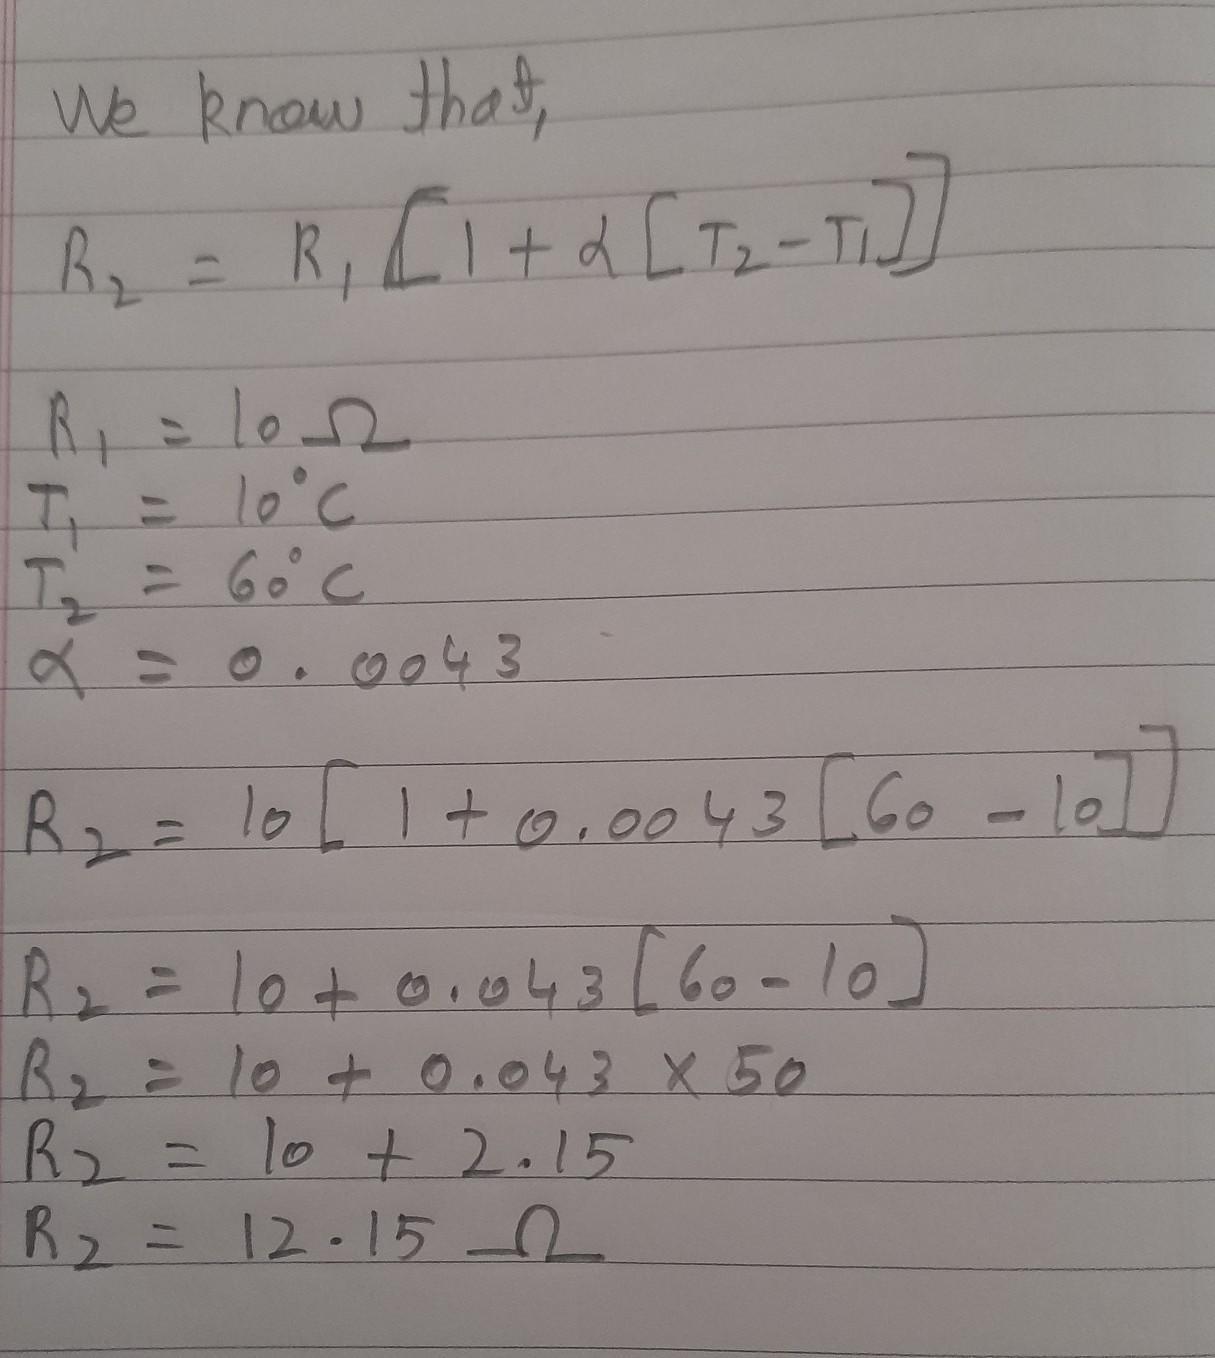 We know that,
R₂ = R₁ [1 + α [T₂ - T₁]]
R₁ = 10 Ω
T₁ = 10°C
T₂ = 60°C
α = 0.0043
R₂ = 10 [ 1 + 0.0043 [60 - 10]]
R₂ = 10 + 0.043 [60 - 10]
R₂ = 10 + 0.043 x 50
R₂ = 10 + 2.15
R₂ = 12.15 Ω